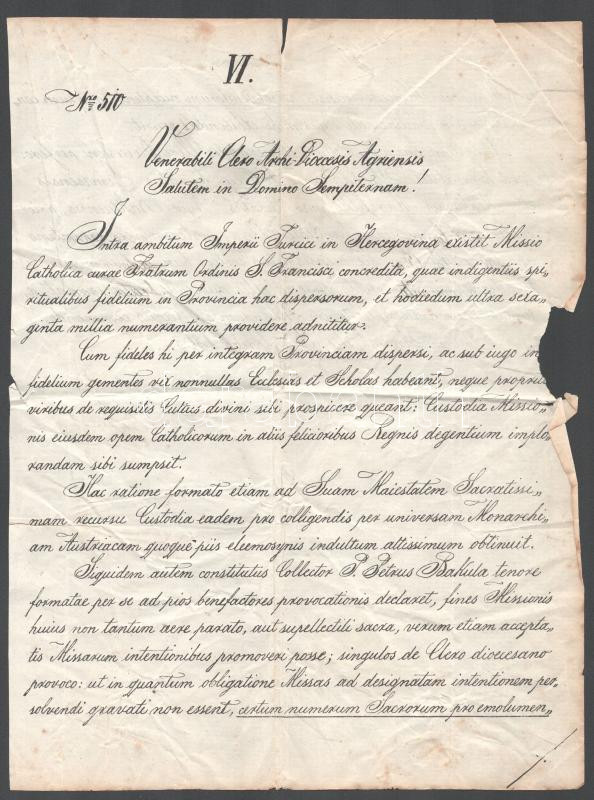 VI.
Nro 510
Venerabili Clero Archi-Dioecesis Agriensis
Salutem in Domino Sempiternam!
Intra ambitum Imperii Turcici in Hercegovina existit Missio
Catholica curae Fratrum Ordinis S. Francisci concredita, quae indigentiis spi„
ritualibus fidelium in Provincia hac dispersorum, et hodiedum ultra sexa„
ginta millia numerantium providere adnititur.
Cum fideles hi per integram Provinciam dispersi, ac sub iugo in
fidelium gementes vix nonnullas Ecclesias et Scholas habeant, neque propriis
viribus de requisitis Cultus divini sibi prospicere queant: Custodia Missio„
nis eiusdem opem Catholicorum in aliis felicioribus Regnis degentium implo„
randam sibi sumpsit.
Hac ratione formato etiam ad Suam Maiestatem Sacratissi„
mam recursu Custodia eadem pro colligendis per universam Monarchi„
am Austriacam quoque piis eleemosynis indultum altissimum obtinuit.
Siquidem autem constitutus Collector P. Petrus Bakula tenore
formatae per se ad pios benefactores provocationis declaret, fines Missionis
huius non tantum aere parato, aut supellectili sacra, verum etiam accepta„
tis Missarum intentionibus promoveri posse; singulos de Clero dioecesano
provoco: ut in quantum obligatione Missas ad designatam intentionem per„
solvendi gravati non essent, certum numerum Sacrorum pro emolumen„